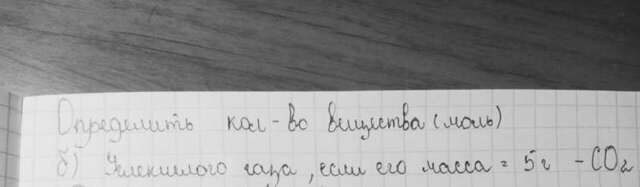 Определить кол-во вещества (моль)
б) Углекислого газа, если его масса = 5г - CO₂